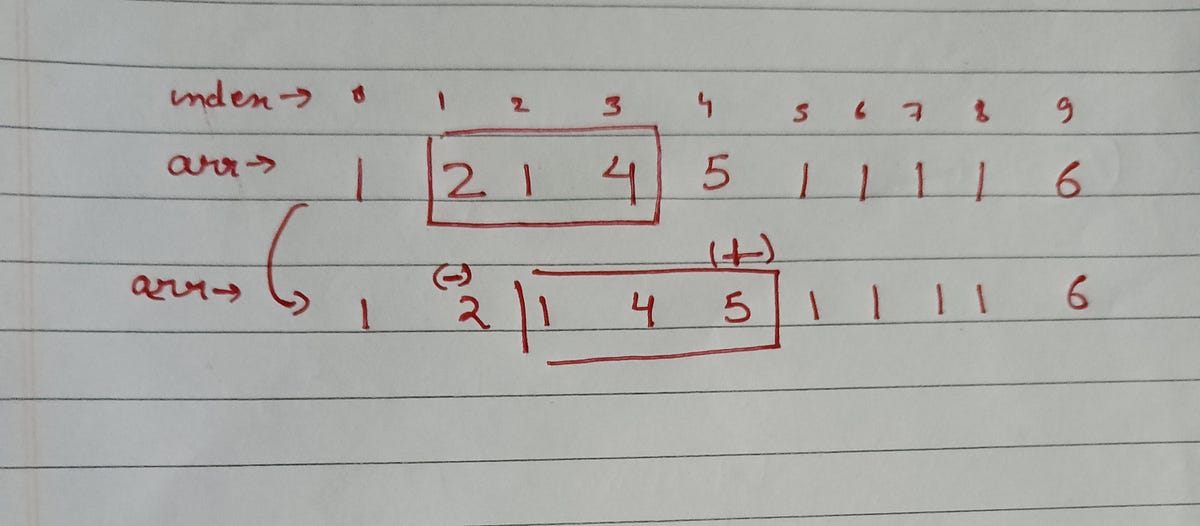 index→ 0 1 2 3 4 5 6 7 8 9
arr→ 1 2 1 4 5 1 1 1 1 6
(-) (+)
arr→ 1 2 1 4 5 1 1 1 1 6